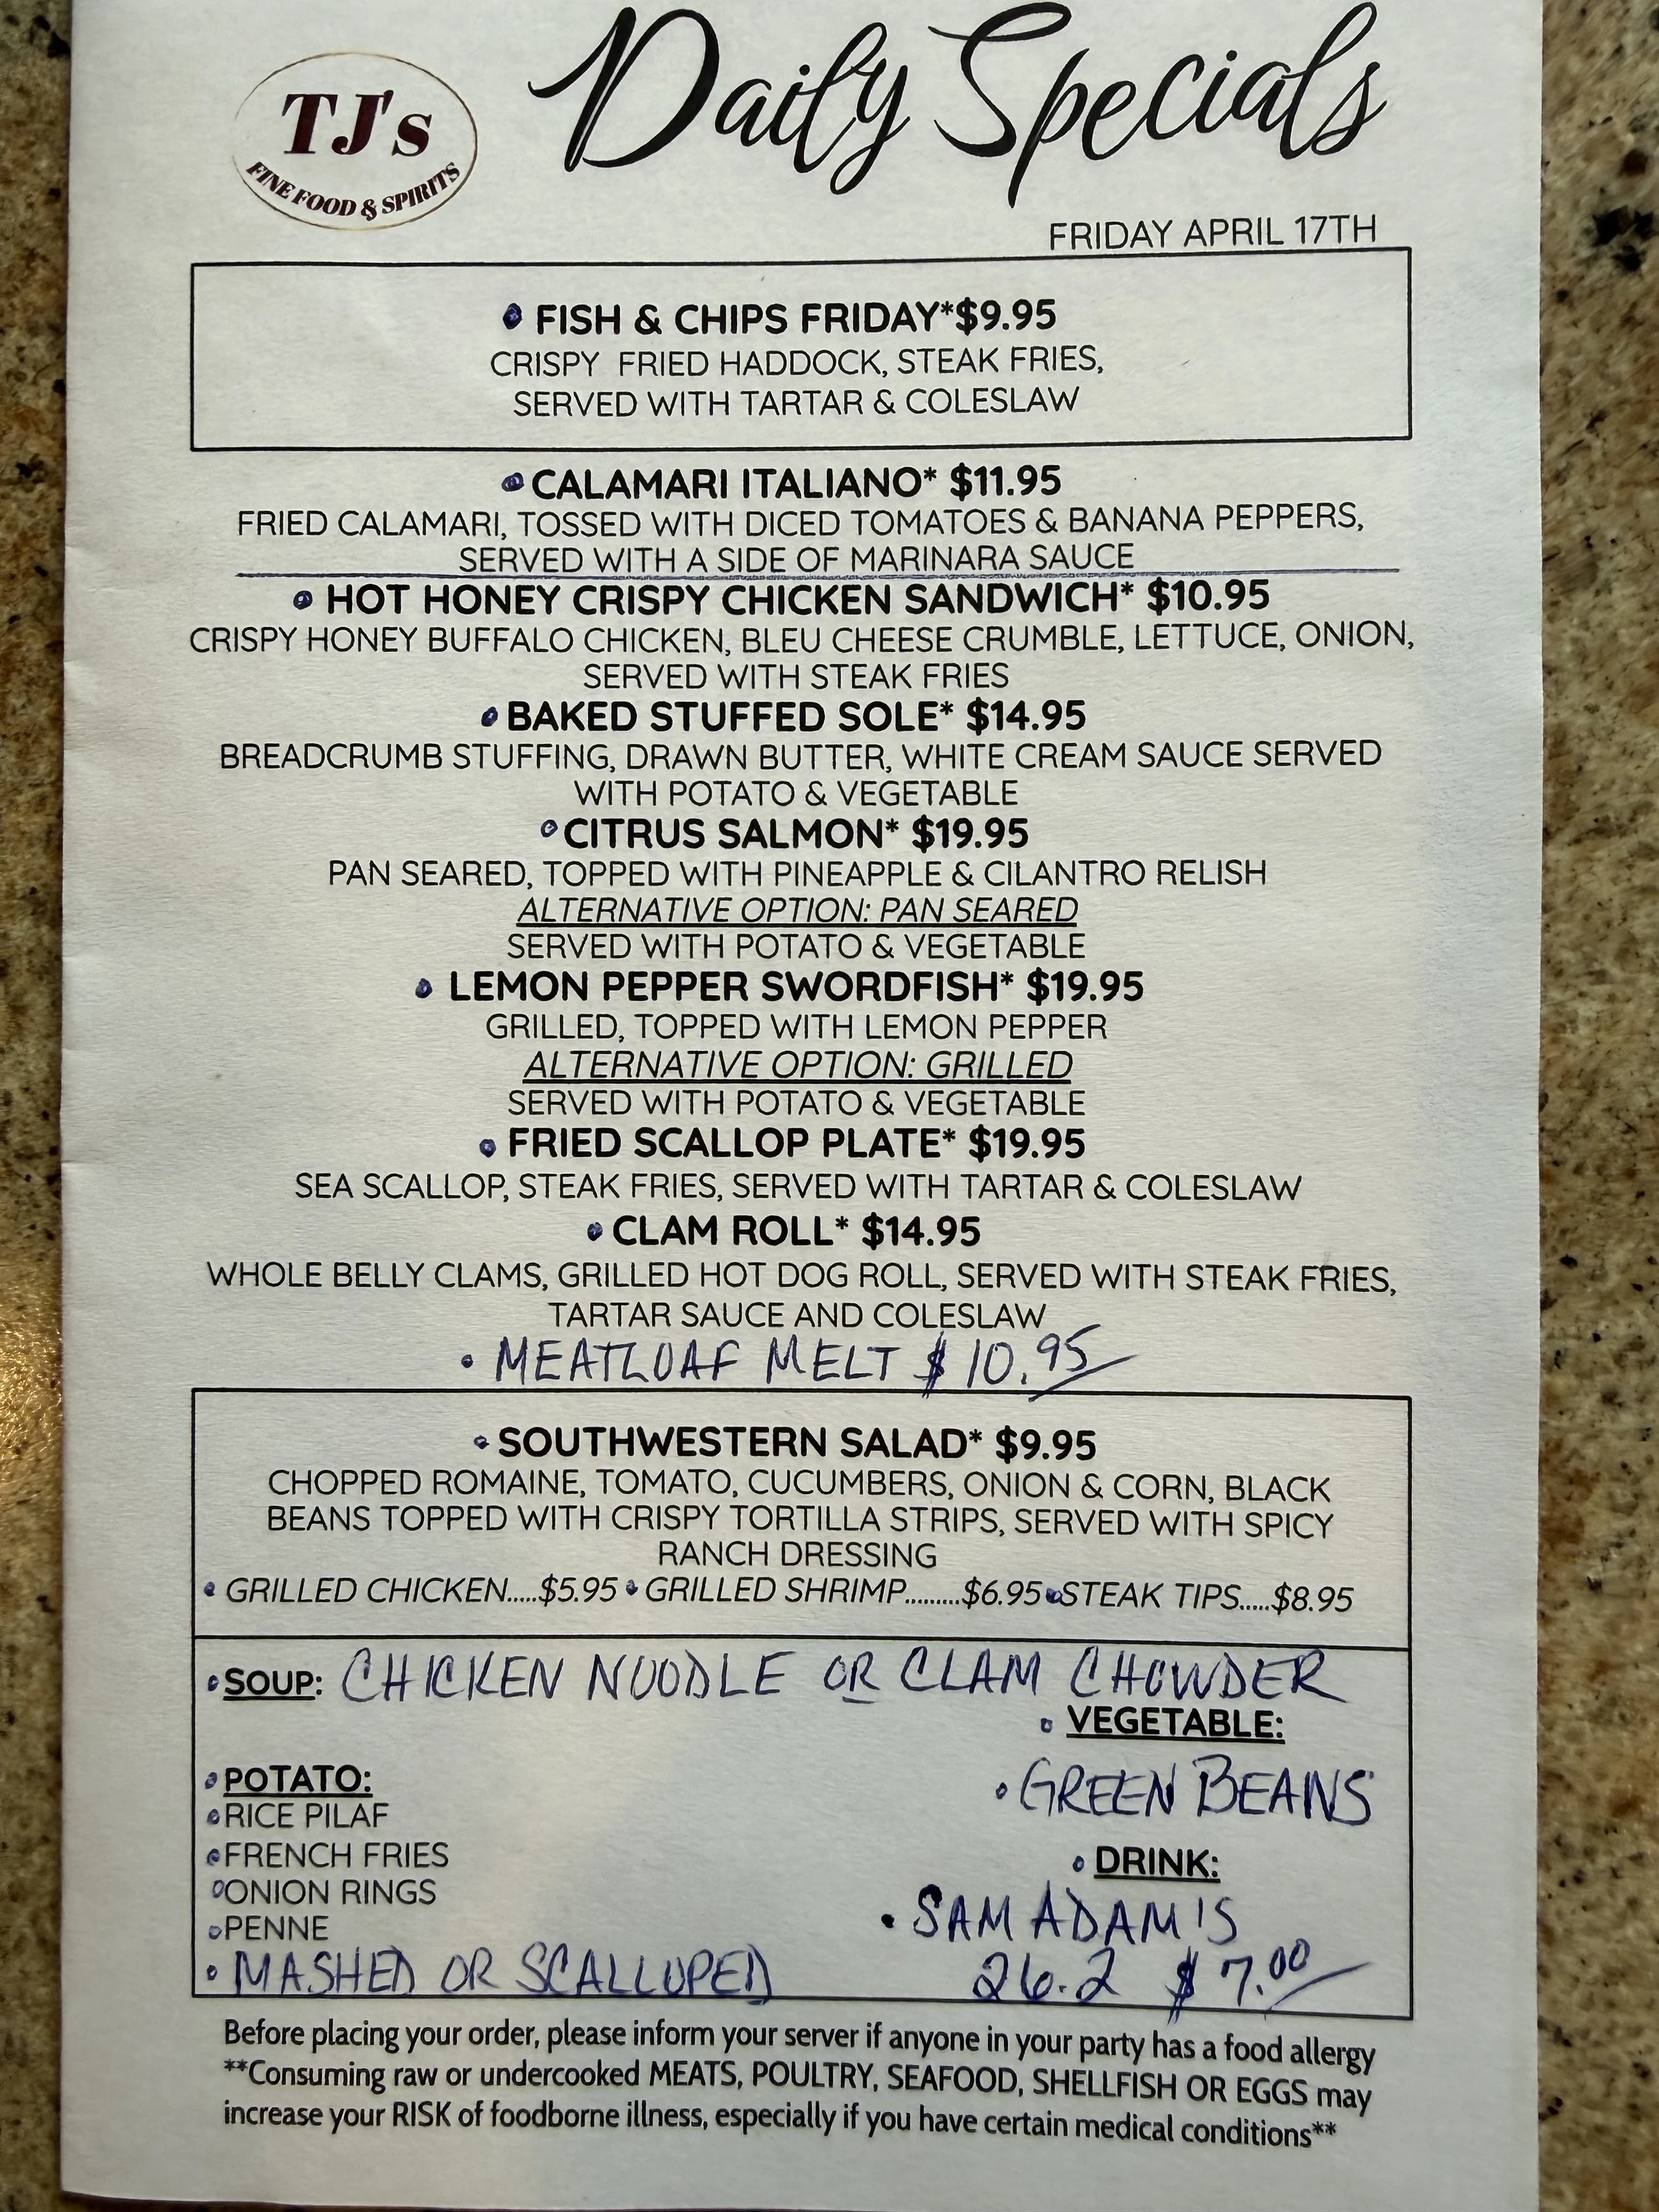 TJ's
FINE FOOD & SPIRITS
Daily Specials
FRIDAY APRIL 17TH
• FISH & CHIPS FRIDAY*$9.95
CRISPY FRIED HADDOCK, STEAK FRIES,
SERVED WITH TARTAR & COLESLAW
• CALAMARI ITALIANO* $11.95
FRIED CALAMARI, TOSSED WITH DICED TOMATOES & BANANA PEPPERS,
SERVED WITH A SIDE OF MARINARA SAUCE
• HOT HONEY CRISPY CHICKEN SANDWICH* $10.95
CRISPY HONEY BUFFALO CHICKEN, BLEU CHEESE CRUMBLE, LETTUCE, ONION,
SERVED WITH STEAK FRIES
• BAKED STUFFED SOLE* $14.95
BREADCRUMB STUFFING, DRAWN BUTTER, WHITE CREAM SAUCE SERVED
WITH POTATO & VEGETABLE
• CITRUS SALMON* $19.95
PAN SEARED, TOPPED WITH PINEAPPLE & CILANTRO RELISH
ALTERNATIVE OPTION: PAN SEARED
SERVED WITH POTATO & VEGETABLE
• LEMON PEPPER SWORDFISH* $19.95
GRILLED, TOPPED WITH LEMON PEPPER
ALTERNATIVE OPTION: GRILLED
SERVED WITH POTATO & VEGETABLE
• FRIED SCALLOP PLATE* $19.95
SEA SCALLOP, STEAK FRIES, SERVED WITH TARTAR & COLESLAW
• CLAM ROLL* $14.95
WHOLE BELLY CLAMS, GRILLED HOT DOG ROLL, SERVED WITH STEAK FRIES,
TARTAR SAUCE AND COLESLAW
• MEATLOAF MELT $10.95
• SOUTHWESTERN SALAD* $9.95
CHOPPED ROMAINE, TOMATO, CUCUMBERS, ONION & CORN, BLACK
BEANS TOPPED WITH CRISPY TORTILLA STRIPS, SERVED WITH SPICY
RANCH DRESSING
• GRILLED CHICKEN.....$5.95 • GRILLED SHRIMP.........$6.95 • STEAK TIPS.....$8.95
• SOUP: CHICKEN NOODLE OR CLAM CHOWDER
• POTATO:
• RICE PILAF
• FRENCH FRIES
• ONION RINGS
• PENNE
• MASHED OR SCALLOPED
• VEGETABLE:
• GREEN BEANS
• DRINK:
• SAM ADAM'S
26.2 $7.00
Before placing your order, please inform your server if anyone in your party has a food allergy
**Consuming raw or undercooked MEATS, POULTRY, SEAFOOD, SHELLFISH OR EGGS may
increase your RISK of foodborne illness, especially if you have certain medical conditions**